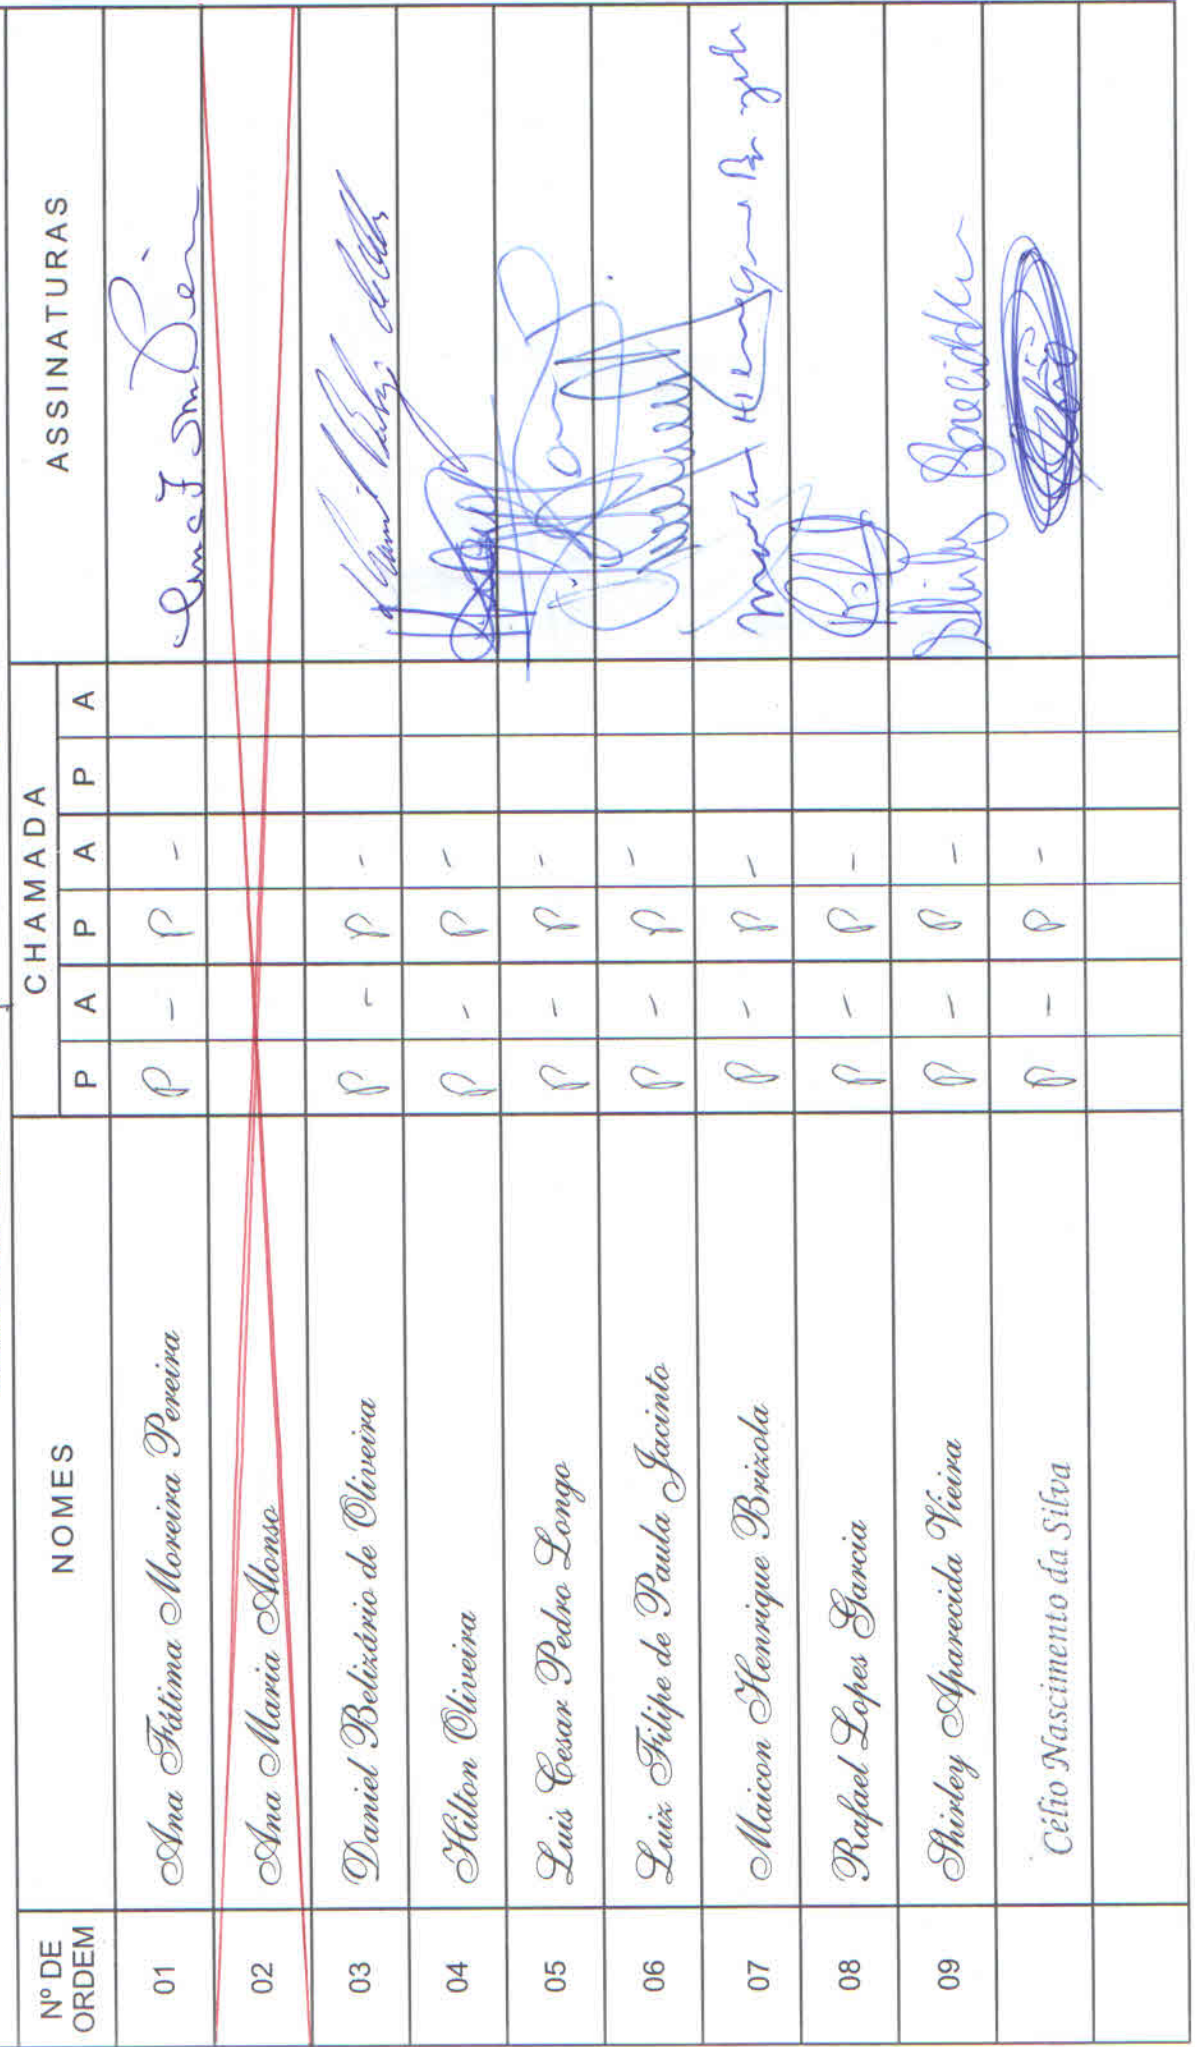 Nº DE ORDEM NOMES CHAMADA ASSINATURAS
P A P A P A
01 Ana Fátima Moreira Pereira P - P -
02 Ana Maria Alonso
03 Daniel Belizário de Oliveira P - P -
04 Hilton Oliveira P - P -
05 Luis Cesar Pedro Longo P - P -
06 Luiz Filipe de Paula Jacinto P - P -
07 Maicon Henrique Brizola P - P -
08 Rafael Lopes Garcia P - P -
09 Shirley Aparecida Vieira P - P - Shirley
Célio Nascimento da Silva P - P - Célio